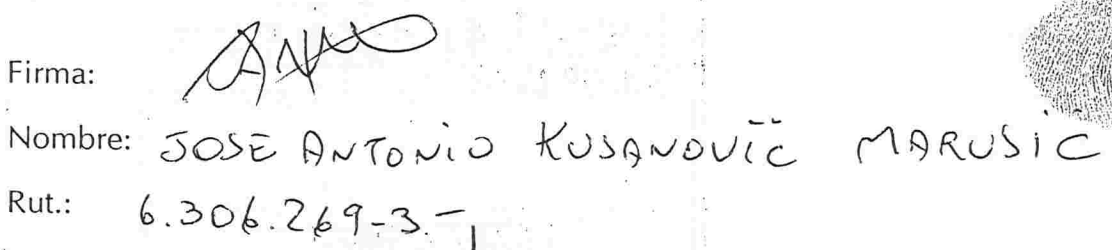 Firma:
Nombre: JOSE ANTONIO KUSANOVIC MARUSIC
Rut.: 6.306.269-3.-